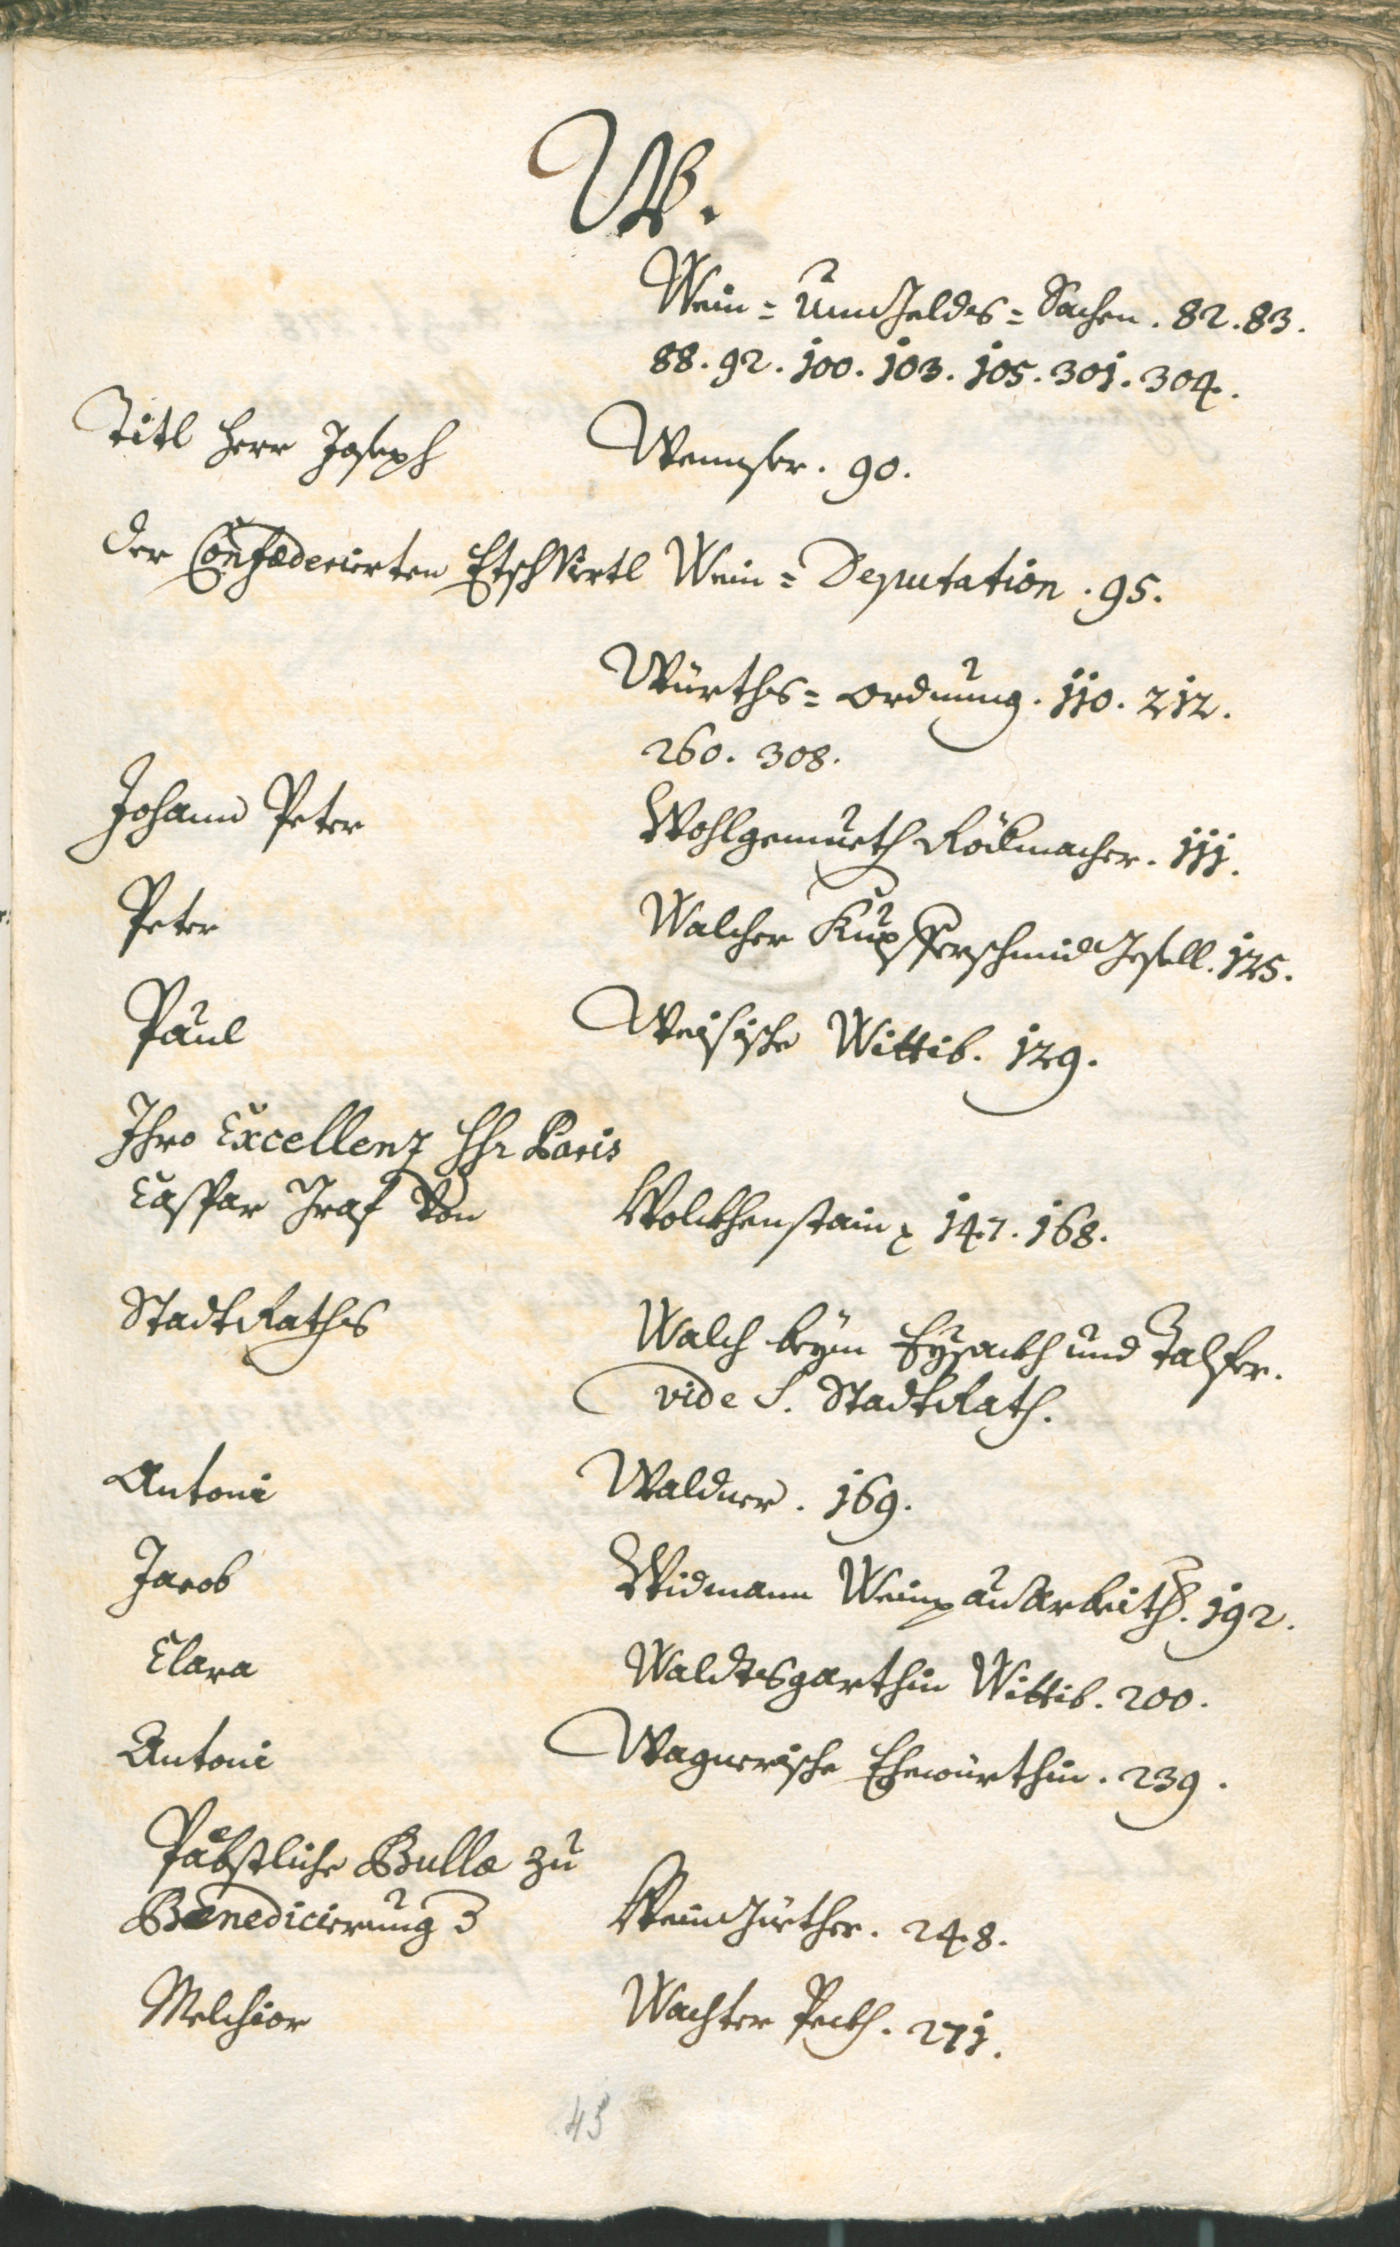 W.
Wein= Umgelds= Sachen. 82. 83.
88. 92. 100. 103. 105. 301. 304.
Titl Herr Joseph Wenser. 90.
Der Confœderierten EtschVirtl Wein= Deputation. 95.
Würths= Ordnung. 110. 212.
260. 308.
Johann Peter Wohlgemueth Röckmacher. 111.
Peter Walcher KupferschmidGesell. 125.
Paul Weisische Wittib. 129.
Ihro Excellenz Hhr Paris
Caspar Graf Von Wolckhenstain 147. 168.
StadtRaths Walch beym Eysackh und Talfer.
vide S. StadtRath.
Antoni Waldner. 169.
Jacob Widmann WeinpauArbeith. 192.
Clara Waldtsgarthin Wittib. 200.
Antoni Wagnerische Ehewürthin. 239.
Päbstliche Bulla zu
Benedicierung 3 Wein 248.
Melchior Wachter Peckh. 271.
45